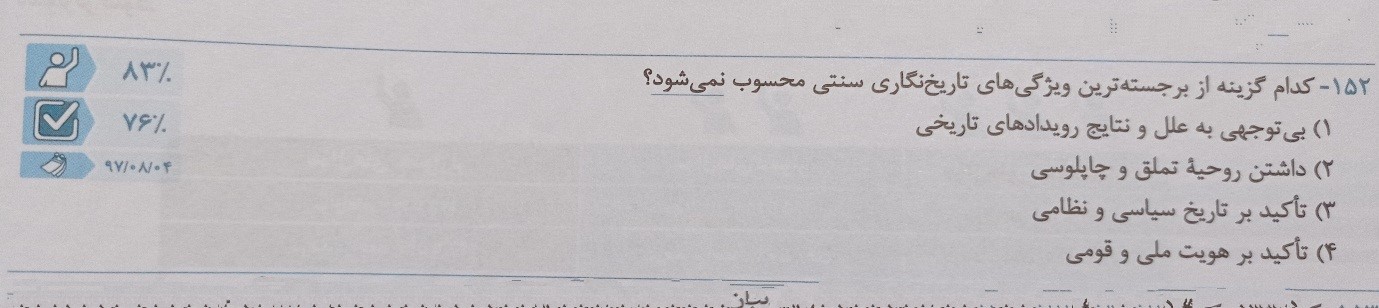 ۱۵۲- کدام گزینه از برجسته‌ترین ویژگی‌های تاریخ‌نگاری سنتی محسوب نمی‌شود؟
۱) بی‌توجهی به علل و نتایج رویدادهای تاریخی
۲) داشتن روحیهٔ تملق و چاپلوسی
۳) تأکید بر تاریخ سیاسی و نظامی
۴) تأکید بر هویت ملی و قومی
۸۳٪
۷۶٪
۹۷/۰۸/۰۴